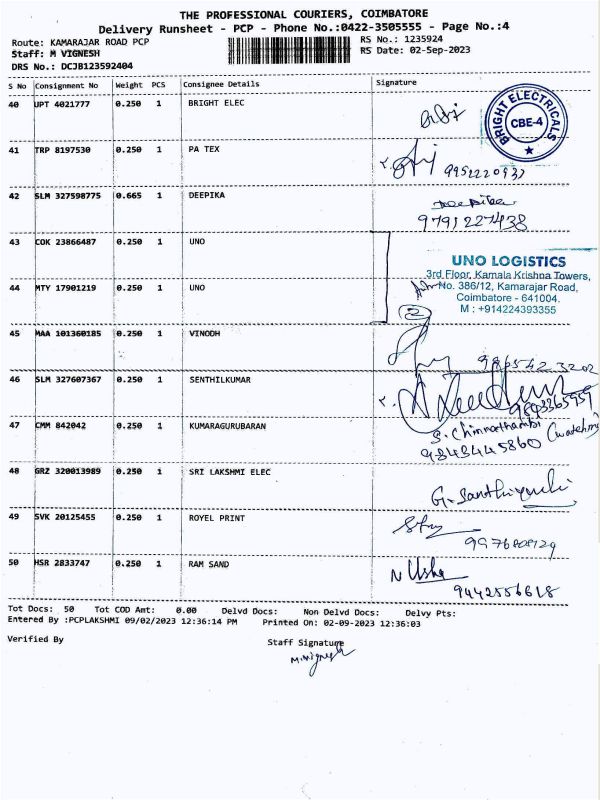 THE PROFESSIONAL COURIERS, COIMBATORE
Delivery Runsheet - PCP - Phone No.:0422-3505555 - Page No.:4
Route: KAMARAJAR ROAD PCP
RS No.: 1235924
Staff: M VIGNESH
RS Date: 02-Sep-2023
DRS No.: DCJB123592404
S No Consignment No Weight PCS Consignee Details Signature
40 UPT 4021777 0.250 1 BRIGHT ELEC
BRIGHT ELECTRICALS
CBE-4
41 TRP 8197530 0.250 1 PA TEX
42 SLM 327598775 0.665 1 DEEPIKA
Deepika
9791227438
43 COK 23866487 0.250 1 UNO
UNO LOGISTICS
3rd Floor, Kamala Krishna Towers,
44 MTY 17901219 0.250 1 UNO
No. 386/12, Kamarajar Road,
Coimbatore - 641004.
M : +914224393355
2
45 MAA 101360185 0.250 1 VINODH
46 SLM 327607367 0.250 1 SENTHILKUMAR
47 CMM 842042 0.250 1 KUMARAGURUBARAN
S. Chinnathambi
9843445860
48 GRZ 320013989 0.250 1 SRI LAKSHMI ELEC
49 SVK 20125455 0.250 1 ROYEL PRINT
50 HSR 2833747 0.250 1 RAM SAND
N Usha
9442556618
Tot Docs: 50 Tot COD Amt: 0.00 Delvd Docs: Non Delvd Docs: Delvy Pts:
Entered By :PCPLAKSHMI 09/02/2023 12:36:14 PM Printed On: 02-09-2023 12:36:03
Verified By
Staff Signature
M.Vignesh